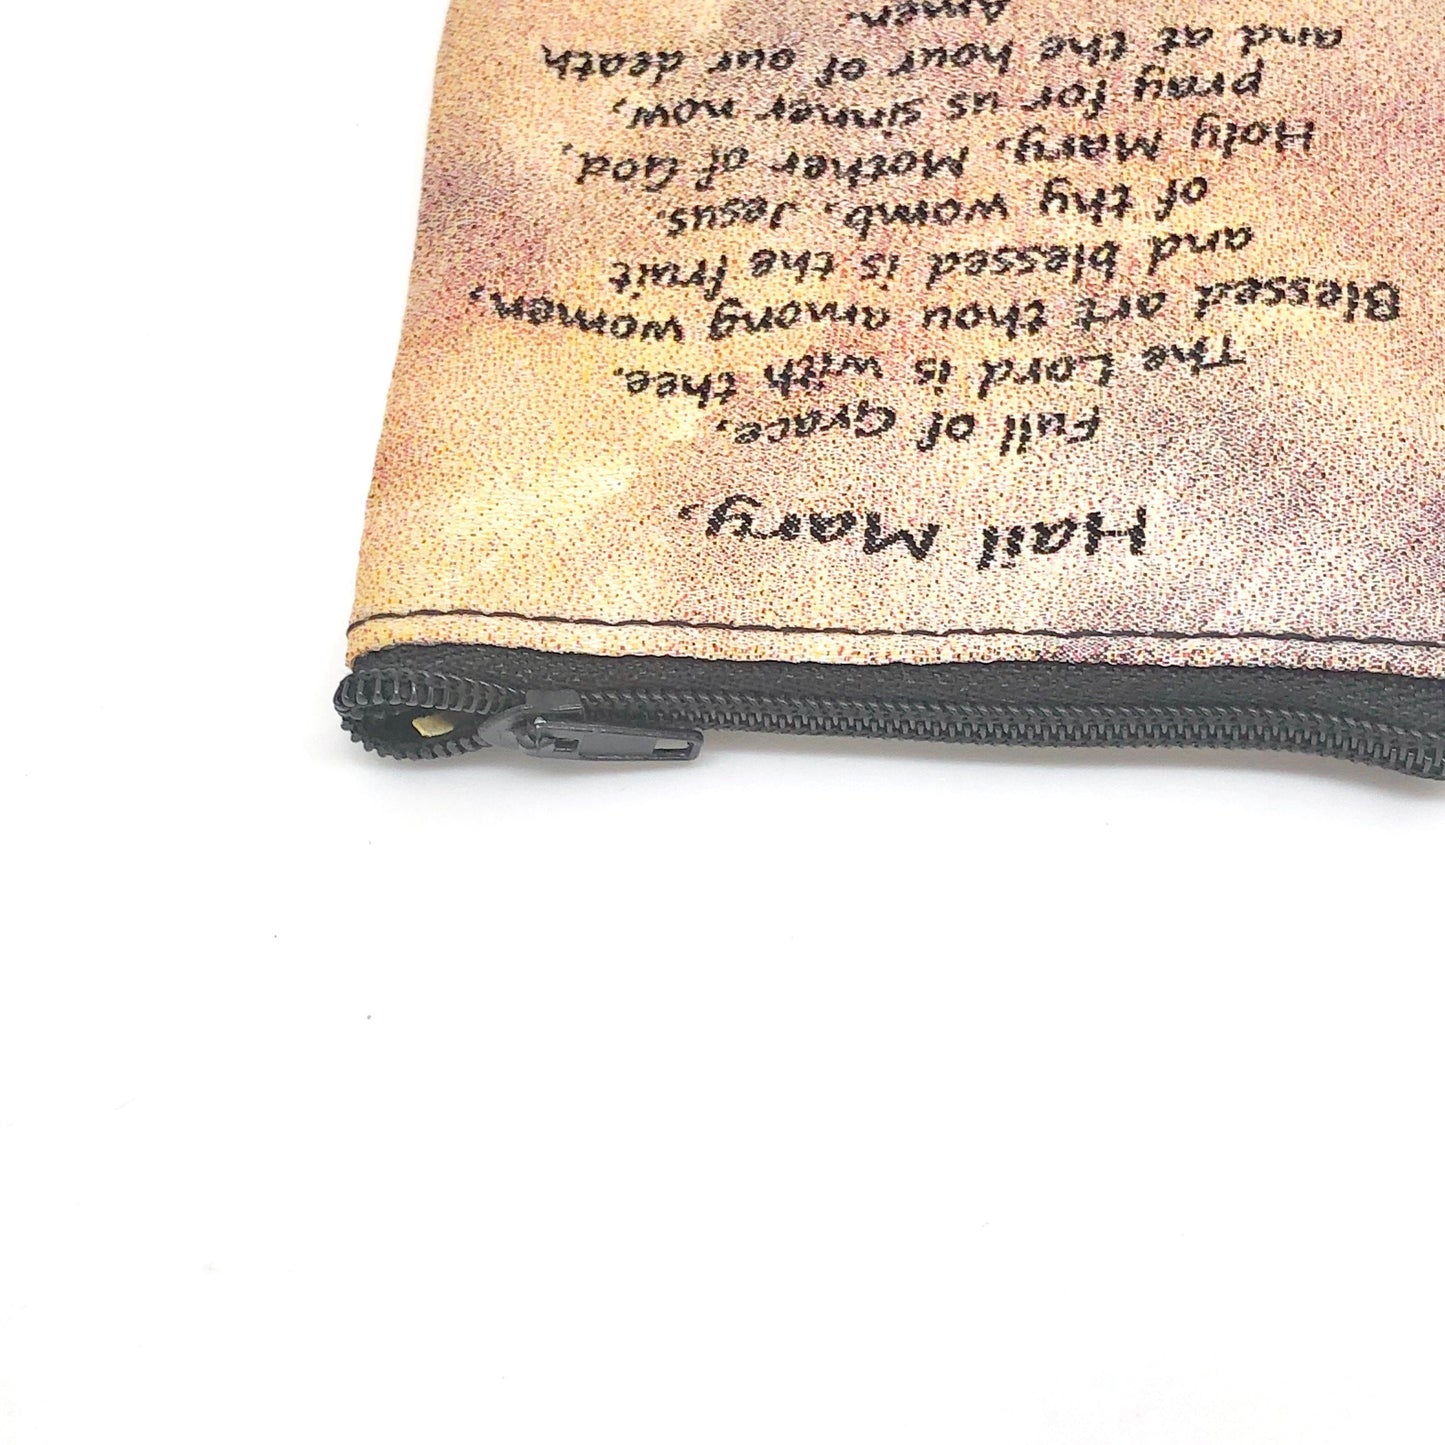 Hail Mary,
Full of Grace,
The Lord is with thee.
Blessed art thou among women,
and blessed is the fruit
of thy womb, Jesus.
Holy Mary, Mother of God,
pray for us sinner now,
and at the hour of our death
Amen.